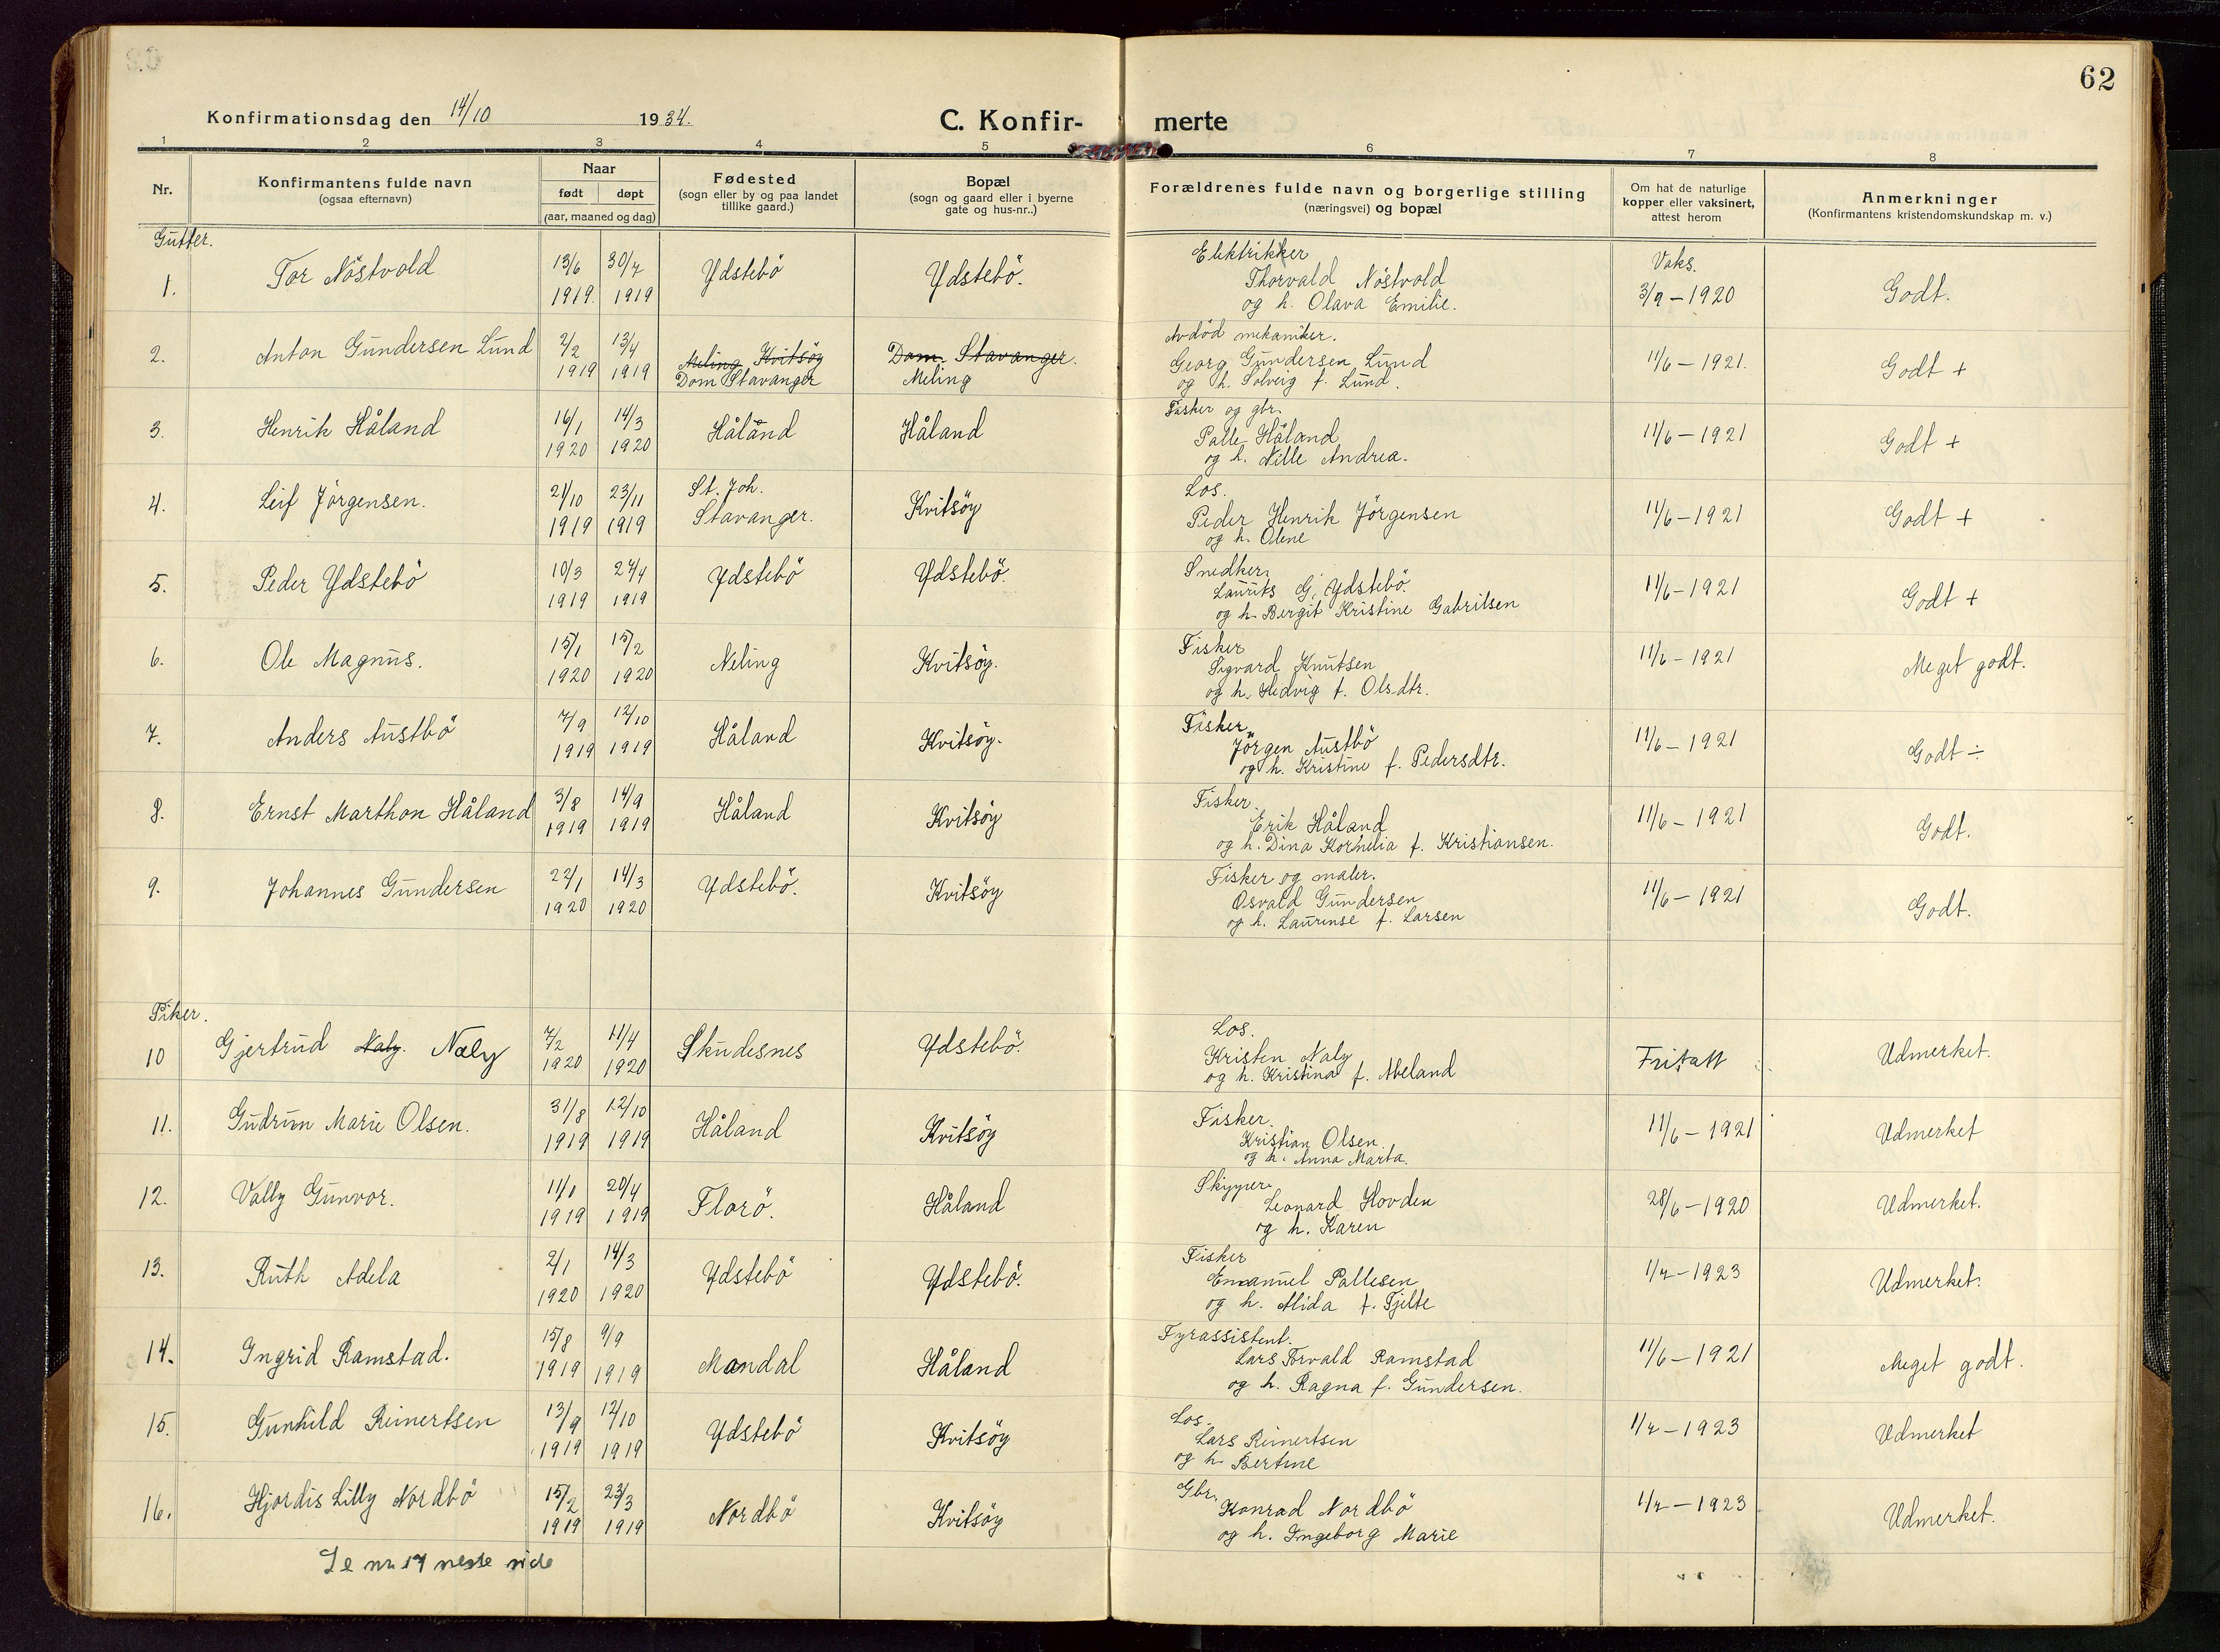 62
Konfirmationsdag den 14/10 1934.
C. Konfir- merte
1 2 3 4 5 6 7 8
Nr.
Konfirmantens fulde navn
(ogsaa efternavn)
Naar
født døpt
(aar, maaned og dag)
Fødested
(sogn eller by og paa landet
tillike gaard.)
Bopæl
(sogn og gaard eller i byerne
gate og hus-nr..)
Forældrenes fulde navn og borgerlige stilling
(næringsvei) og bopæl
Om hat de naturlige
kopper eller vaksinert,
attest herom
Anmerkninger
(Konfirmantens kristendomskundskap m. v.)
Gutter.
1. Tor Nöstvold 13/6 1919. 30/7 1919 Ydstebö Ydstebö.
Elektrikker
Thorvald Nöstvold
og h. Olava Emilie.
Vaks.
3/9 – 1920 Godt.
2. Anton Gundersen Lund 2/2 1919 13/4 1919
Meling Kvitsöy
Dom Stavanger
Dom. Stavanger.
Meling
Avdöd mekaniker.
Georg Gundersen Lund
og h. Solveig f. Lund.
11/6 – 1921. Godt +
3. Henrik Håland 16/1 1920 14/3 1920 Håland Håland
Fisker og gbr.
Palle Håland
og h. Nille Andrea.
11/6 – 1921 Godt +
4. Leif Jörgensen. 21/10 1919 23/11 1919
St. Joh.
Stavanger.
Kvitsöy
Los.
Peder Henrik Jörgensen
og h. Olene
11/6 – 1921 Godt +
5. Peder Ydstebö 10/3 1919 27/4 1919 Ydstebö Ydstebö.
Snedker
Laurits G. Ydstebö.
og h. Bergit Kristine Gabrilsen
11/6 – 1921 Godt +
6. Ole Magnus. 15/1 1920 15/2 1920 Meling Kvitsöy.
Fisker
Sigvard Knutsen
og h. Hedvig f. Olsdtr.
11/6 – 1921 Meget godt.
7. Anders Austbö 7/9 1919 12/10 1919 Håland Kvitsöy.
Fisker
Jörgen Austbö
og h. Kristine f. Pedersdtr.
11/6 – 1921 Godt ÷
8. Ernst Marthon Håland 3/8 1919 14/9 1919 Håland Kvitsöy
Fisker
Erik Håland
og h. Dina Kornelia f. Kristiansen.
11/6 – 1921 Godt.
9. Johannes Gundersen 22/1 1920 14/3 1920 Ydstebö. Kvitsöy
Fisker og maler.
Osvald Gundersen
og h. Laurense f. Larsen
11/6 – 1921 Godt.
Piker.
10 Gjertrud Naly. Næly 7/2 1920 11/4 1920 Skudesnes Ydstebö.
Los.
Kristen Naly
og h. Kristina f. Abeland
Fritatt Udmerket.
11. Gudrun Marie Olsen. 31/8 1919 12/10 1919 Håland Kvitsöy
Fisker.
Kristian Olsen
og h. Anna Marta.
11/6 – 1921 Udmerket
12. Vally Gunvor. 11/1 1919 20/4 1919 Florö. Håland
Skipper
Leonard Hovden
og h. Karen
28/6 – 1920 Udmerket.
13. Ruth Adela 2/1 1920 14/3 1920 Ydstebö Ydstebö.
Fisker
Emanuel Pallesen
og h. Alida f. Tjelte
1/7 – 1923 Udmerket.
14. Ingrid Ramstad. 15/8 1919 9/9 1919 Mandal Håland
Fyrassistent.
Lars Torvald Ramstad
og h. Ragna f. Gundersen.
11/6 – 1921 Meget godt.
15. Gunhild Reinertsen 13/9 1919 12/10 1919 Ydstebö Kvitsöy
Los.
Lars Reinertsen
og h. Bertine
1/7 – 1923 Udmerket
16. Hjordis Lilly Nordbö 15/2 1919 23/3 1919 Nordbö Kvitsöy
Gbr.
Konrad Nordbö
og h. Ingeborg Marie
1/7 – 1923 Udmerket.
Se nr 17 neste side